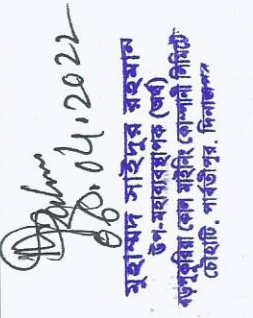 ০৩.০৪.2022
মুহাম্মদ সাইদুর রহমান
উপ-মহাব্যবস্থাপক (অর্থ)
বড়পুকুরিয়া কোল মাইনিং কোম্পানী লিমিটেড
চৌহাটি, পার্বতীপুর, দিনাজপুর